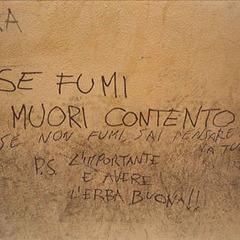 SE FUMI
MUORI CONTENTO
SE NON FUMI, SAI PENSARE
P.S L'IMPORTANTE
E AVERE
L'ERBA BUONA!!